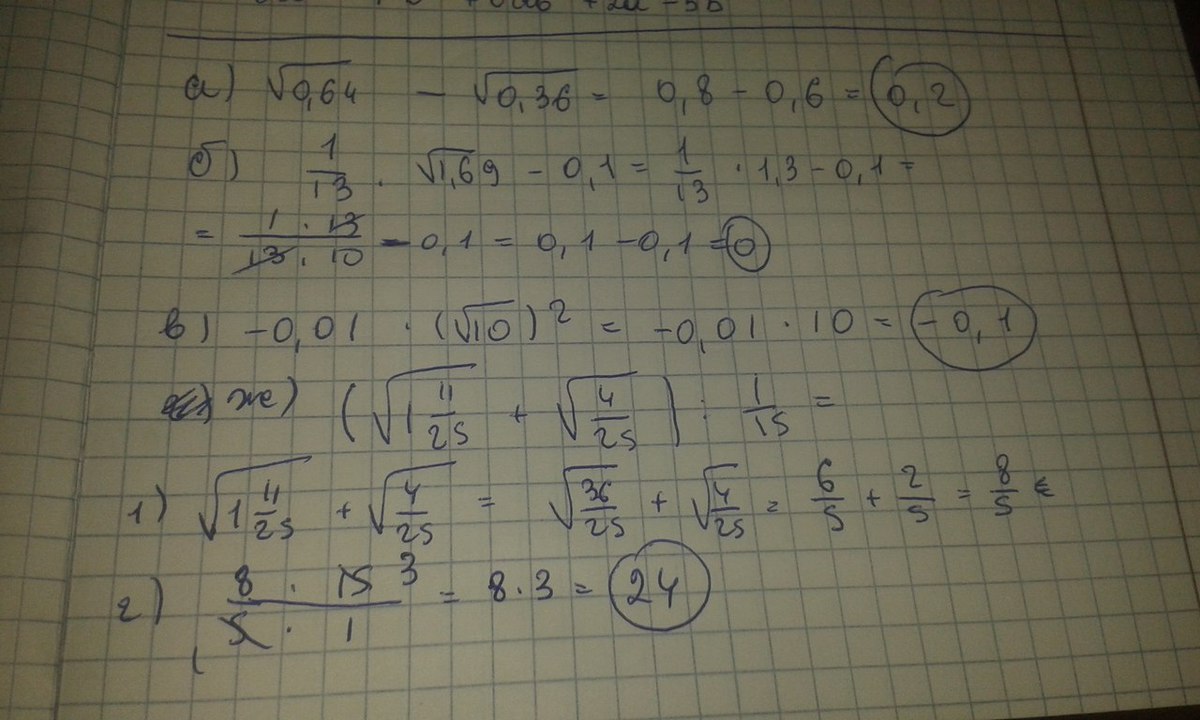 а) √0,64 - √0,36 = 0,8 - 0,6 = 0,2
б) 1/13 · √1,69 - 0,1 = 1/13 · 1,3 - 0,1 =
= 1 · 13/13 · 10 - 0,1 = 0,1 - 0,1 = 0
в) -0,01 · (√10)² = -0,01 · 10 = -0,1
же) (√1 11/25 + √4/25) : 1/15 =
1) √1 11/25 + √4/25 = √36/25 + √4/25 = 6/5 + 2/5 = 8/5
2) 8 · 15 3/5 · 1 = 8 · 3 = 24